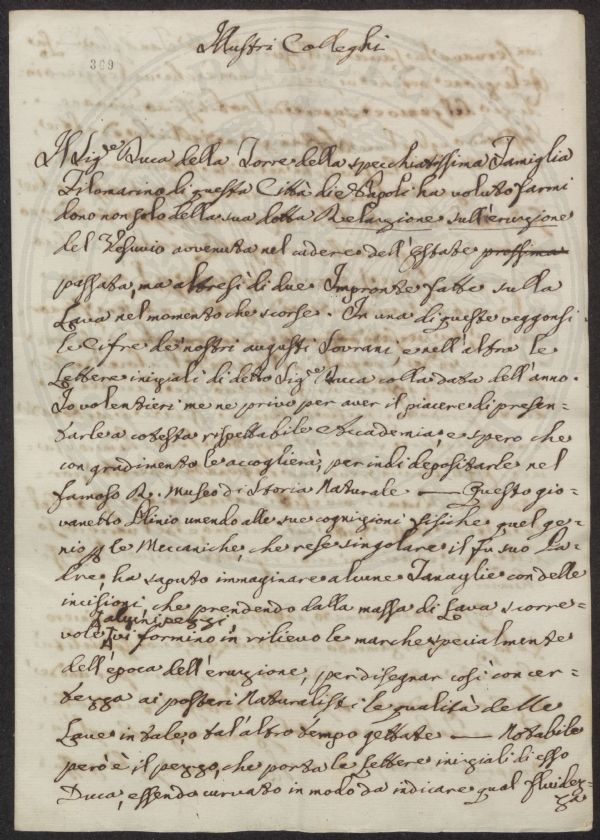 Illustri Colleghi
369
Il Sig.e Duca della Torre della specchiatissima Famiglia
Filomarino di questa Città di Napoli ha voluto farmi
dono non solo della sua dotta Relazione sull'eruzione
del Vesuvio avvenuta nel cadere dell'Estate prossima
passata, ma altresì di due Impronte fatte sulla
Lava nel momento che scorse. In una di queste veggonsi
le Cifre de' nostri augusti Sovrani, e nell'altra le
Lettere iniziali di detto Sig.e Duca colla data dell'anno.
Io volentieri me ne privo per aver il piacere di presen=
tarle a cotesta rispettabile Accademia, e spero che
con gradimento le accoglierà, per indi depositarle nel
famoso R. Museo di Storia Naturale. — Questo gio=
vanetto Plinio unendo alle sue cognizioni fisiche quel ge=
nio p le Meccaniche, che rese singolare il fu suo Pa=
dre, ha saputo immaginare alcune Tanaglie con delle
incisioni, che prendendo dalla massa di Lava scorre=
alcuni pezzi,
vole vi formino in rilievo le marche specialmente
dell'epoca dell'eruzione, per disegnar così con cer=
tezza ai posteri Naturalisti le qualità delle
Lave in tale, o tal'altro tempo gettate — Notabile
però è il pezzo, che porta le lettere iniziali di esso
Duca, essendo curvato in modo da indicare qual fluidez=
za